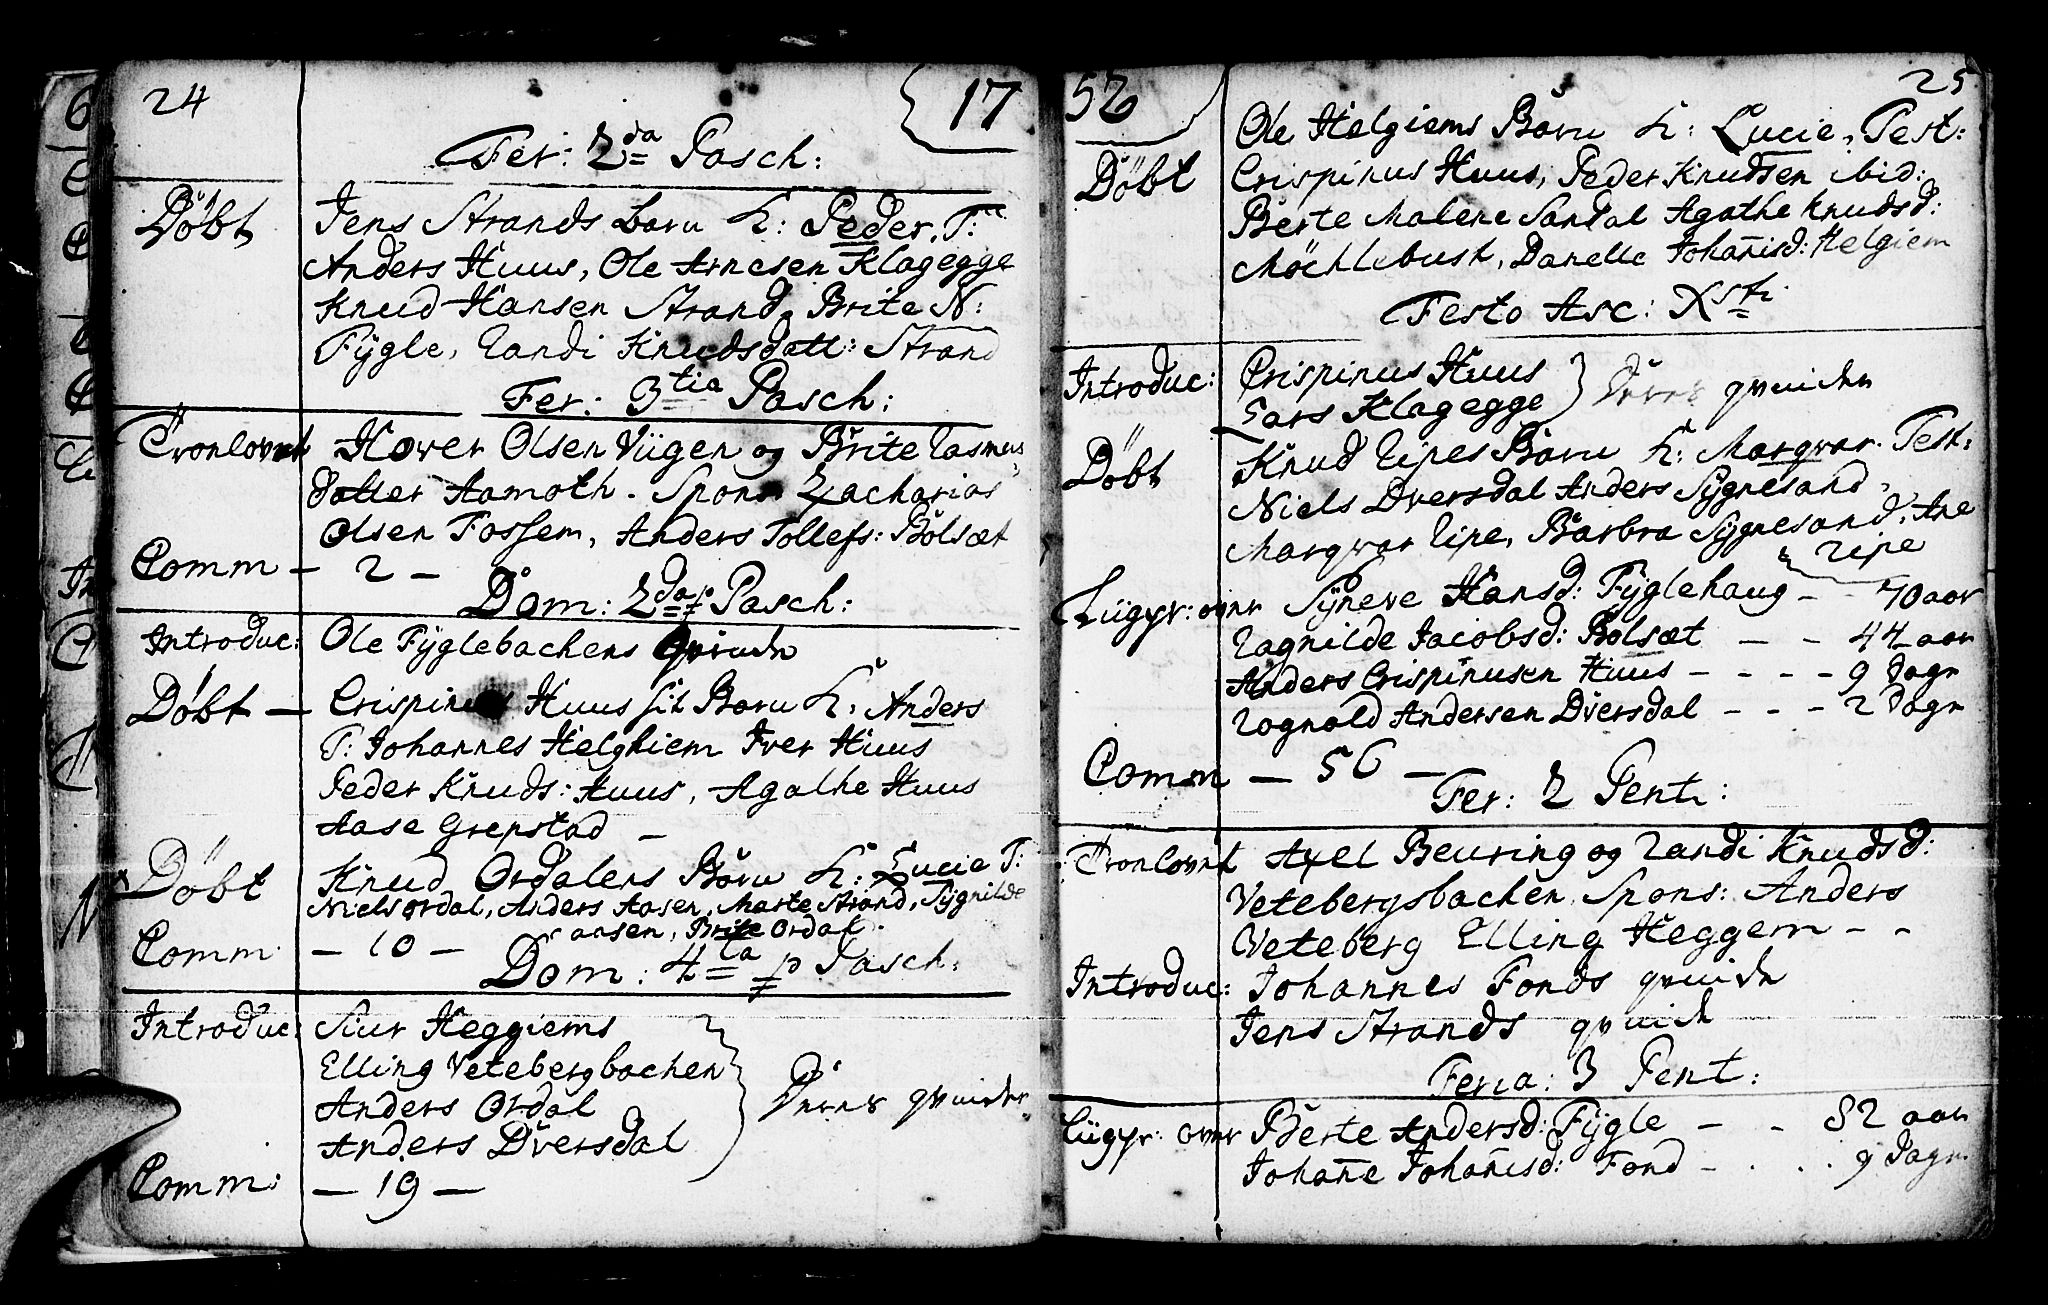 24 17
Fer: 2da Pasch:
Döbt Jens Strands barn K: Peder. T:
Anders Huus, Ole Arnesen Klagegge
Knud Hansen Strand, Brite N:
Fÿgle, Randi Knudsdatt: Strand
Fer: 3tia Pasch:
Tronlovet Hover Olsen Viigen og Brite Rasmus
datter Aamoth. Spons: Zacharias
Olsen Fossem, Anders Tollefs: Bolsæt
Comm – 2 –
Dom: 2da p Pasch:
Introduc: Ole Fÿglebachens qvinde
Döbt – Crispinus Huus sit Barn K: Anders
T: Johannes Helghiem Iver Huus
Peder Knuds: Huus, Agathe Huus
Aase Grepstad –
Döbt Knud Ordalens Barn K: Lucie T:
Niels ordal, Anders Aasen, Marte Strand, Sÿgnilde
aasen, Brite Ordal.
Comm – 10 –
Dom: 4ta p Pasch:
Introduc: Siur Heggiems
Elling Vetebergbachen
Anders Ordal
Anders Dversdal
Deres qvinder
Comm: – 19 –
52 25
Döbt Ole Helgiems Barn K: Lucie, Test:
Crispinus Huus, Peder Knudsen ibid:
Berte Malene Sandal Agathe Knudsd:
Möchlebust, Danelle Johañisd: Helgiem
Festo Asc: Xsti
Introduc: Crispinus Huus
Lars Klagegge
Deres qvinder
Döbt Knud Ripes Barn K: Margvar. Test:
Niels Dversdal Anders Sÿgnesand,
Margvar Ripe, Barbra Sÿgnesand, Ane
Ripe
Liigpr: over Sÿneve Hansd: Fÿglehaug – – 70 aar
Ragnilde Jacobsd: Bolsæt – – 44 aar
Anders Crispinusen Huus – – – – 9 Dage
Rognald Andersen Dversdal – – – 2 Dage
Comm – 56 –
Fer: 2 Pent:
Tronlovet Axel Beuring og Randi Knudsd:
Vetebergsbachen Spons: Anders
Veteberg Elling Heggem – –
Introduc: Johannes Fonds qvinde
Jens Strands qvinde
Feria: 3 Pent:
Liigpr: over Berte Andersd: Fÿgle – – 82 aar
Johañe Johañisd: Fond – . . . 9 Dage